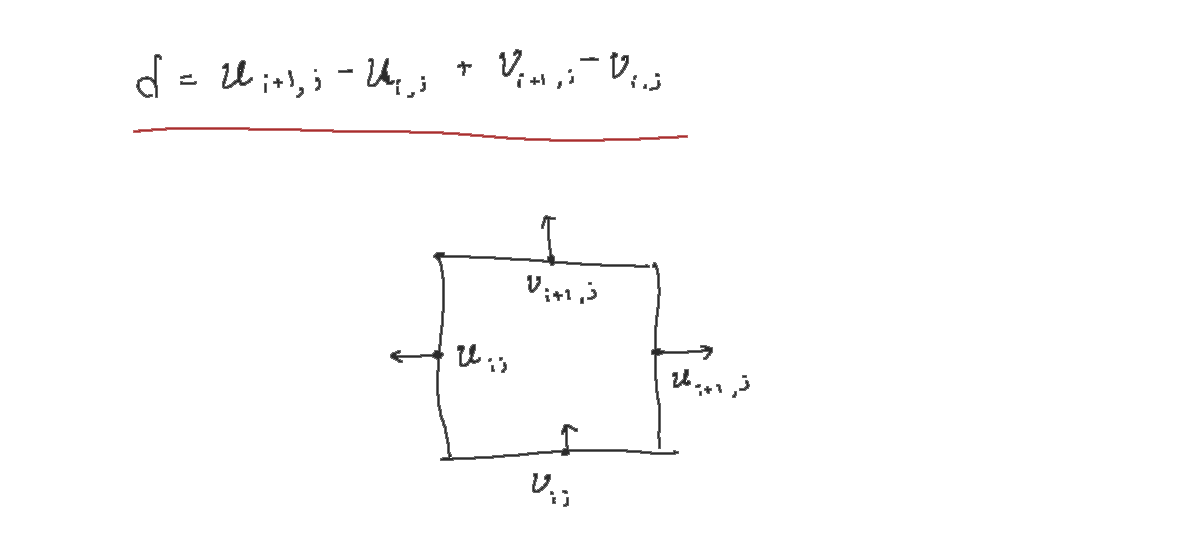 d = u i+1,j - u i,j + v i+1,j - v i,j
v i+1,j
u ij
u i+1,j
v ij